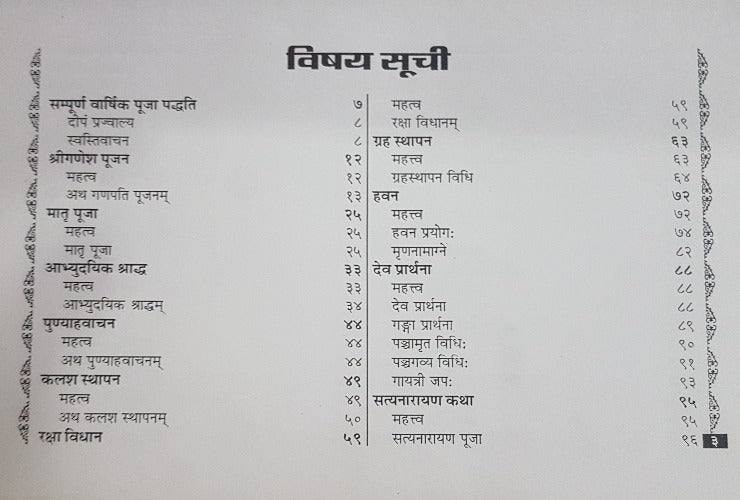 विषय सूची
सम्पूर्ण वार्षिक पूजा पद्धति ७
दीपं प्रज्वाल्य ८
स्वस्तिवाचन ८
श्रीगणेश पूजन १२
महत्व १२
अथ गणपति पूजनम् १३
मातृ पूजा २५
महत्व २५
मातृ पूजा २५
आभ्युदयिक श्राद्ध ३३
महत्व ३३
आभ्युदयिक श्राद्धम् ३४
पुण्याहवाचन ४४
महत्व ४४
अथ पुण्याहवाचनम् ४४
कलश स्थापन ४९
महत्व ४९
अथ कलश स्थापनम् ५०
रक्षा विधान ५९
महत्व ५९
रक्षा विधानम् ५९
ग्रह स्थापन ६३
महत्त्व ६३
ग्रहस्थापन विधि ६४
हवन ७२
महत्त्व ७२
हवन प्रयोगः ७४
मृणनामाग्ने ८२
देव प्रार्थना ८८
महत्त्व ८८
देव प्रार्थना ८८
गङ्गा प्रार्थना ८९
पञ्चामृत विधिः ९०
पञ्चगव्य विधिः ९१
गायत्री जपः ९३
सत्यनारायण कथा ९५
महत्त्व ९५
सत्यनारायण पूजा ९६
३